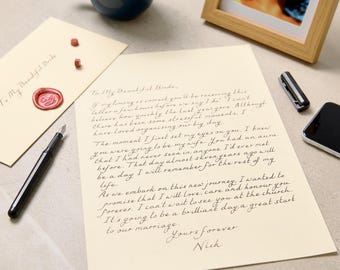 To My Beautiful Bride
To My Beautiful Bride,
If my timing is correct you'll be receiving this
letter a few hours before we say I do. I can't
believe how quickly the last year has gone. Although
there has been some stressful moments, I
have loved organising our big day.
The moment I first set my eyes on you, I knew
you were going to be my wife. You had an aura
that I had never seen in anyone. I'd ever met
before. That day almost seven years ago will
be a day I will remember for the rest of my
life.
As we embark on this new journey, I wanted to
promise that I will love, care and honour you
forever. I can't wait to see you at the church.
It's going to be a brilliant day & a great start
to our marriage.
Yours forever
Nick